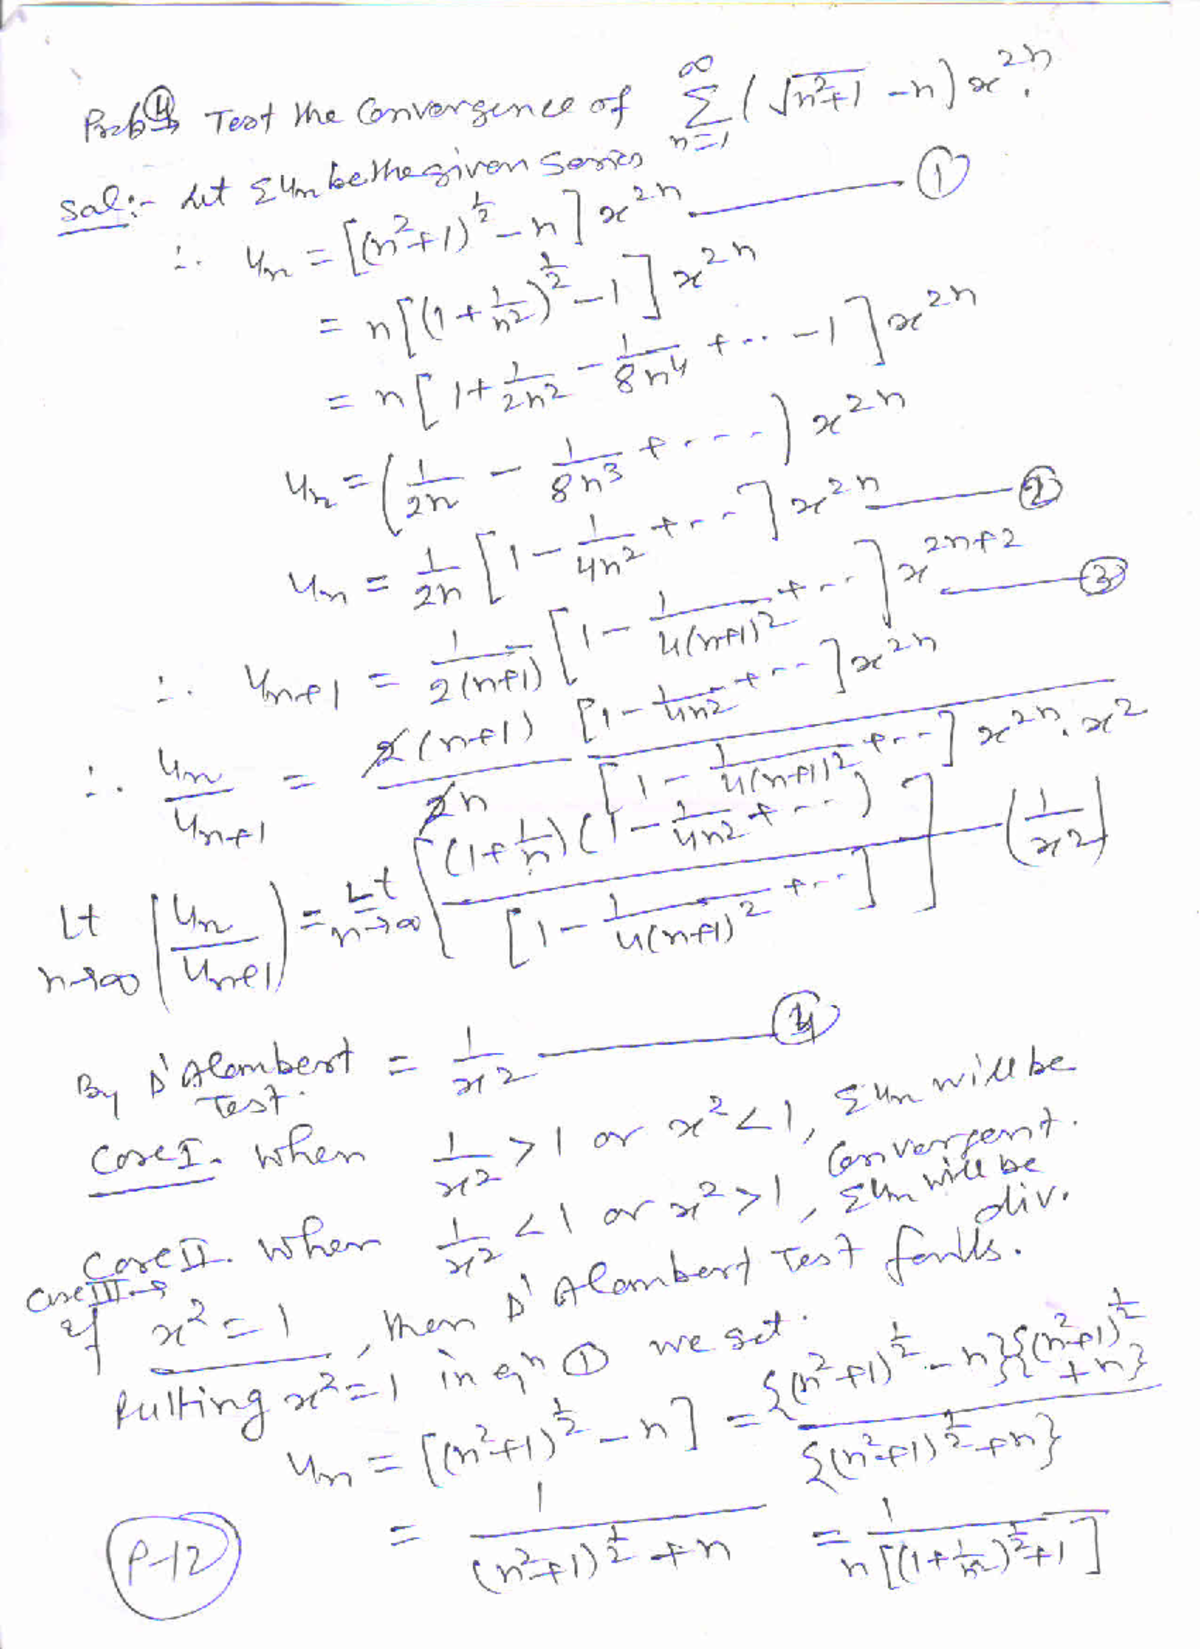 Prob ④ Test the Convergence of ∑_{n=1}^{∞} (√(n²+1) - n) x^{2n}.
Sol:- Let ∑un be the given series
∴ un = [(n²+1)^{1/2} - n] x^{2n} ——— ①
= n[(1 + 1/n²)^{1/2} - 1] x^{2n}
= n[1 + 1/2n² - 1/8n⁴ + ... - 1] x^{2n}
un = (1/2n - 1/8n³ + ....) x^{2n}
un = 1/2n [1 - 1/4n² + ...] x^{2n} ——— ②
∴ un+1 = 1/2(n+1) [1 - 1/4(n+1)² + ...] x^{2n+2} ——— ③
∴ un/un+1 = 2(n+1)/2n [1 - 1/4n² + ...] x^{2n} / [1 - 1/4(n+1)² + ...] x^{2n}. x²
Lt n→∞ (un/un+1) = Lt n→∞ [(1 + 1/n)(1 - 1/4n² + ...) / [1 - 1/4(n+1)² + ...]] (1/x²)
By D'Alembert Test. = 1/x² ——— ④
Case I. When 1/x² > 1 or x² < 1, ∑un will be Convergent.
Case II. When 1/x² < 1 or x² > 1, ∑un will be div.
Case III →
If x² = 1, then D'Alembert Test fails.
Putting x² = 1 in eqn ① we get.
un = [(n²+1)^{1/2} - n] = {(n²+1)^{1/2} - n}{(n²+1)^{1/2} + n} / {(n²+1)^{1/2} + n}
= 1/((n²+1)^{1/2} + n) = 1/(n[(1 + 1/n²)^{1/2} + 1])
P-12